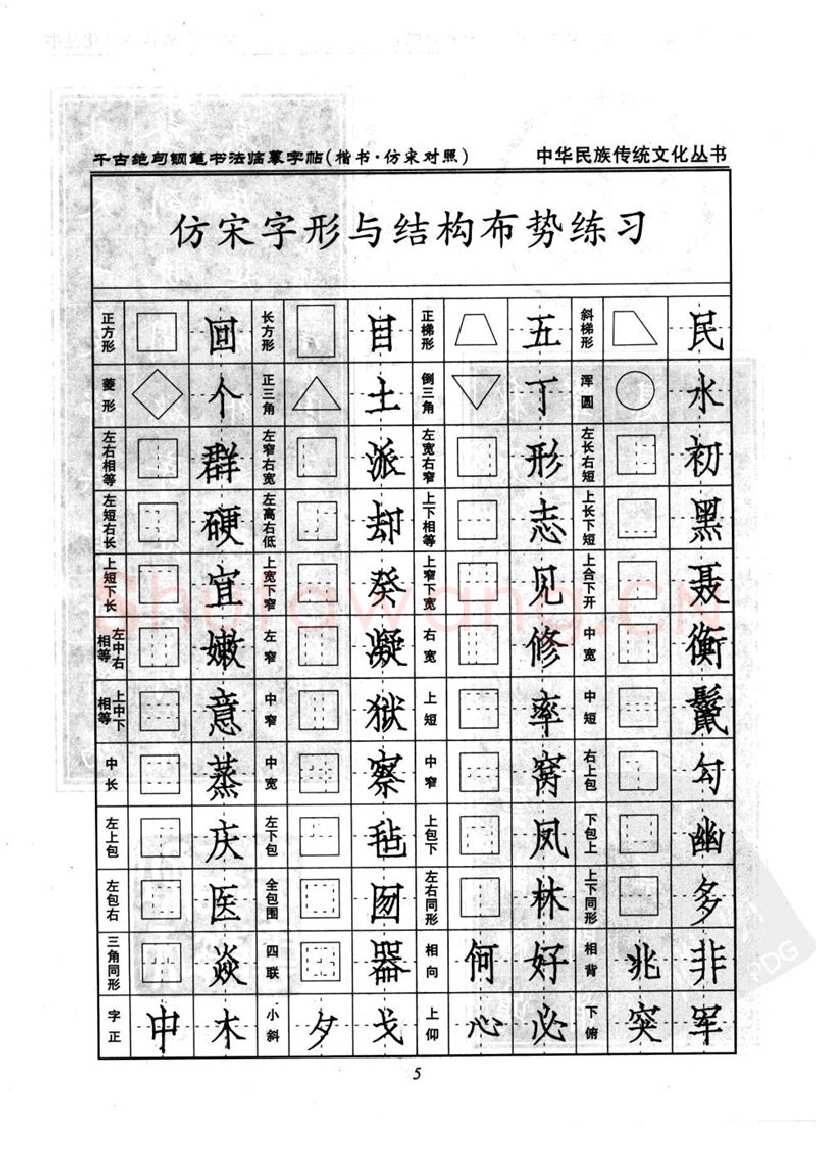 千古绝句钢笔书法临摹字帖(楷书·仿宋对照) 中华民族传统文化丛书
仿宋字形与结构布势练习
正方形 回 长方形 目 正梯形 五 斜梯形 民
菱形 个 正三角 土 倒三角 丁 浑圆 水
左右相等 群 左窄右宽 派 左宽右窄 形 左长右短 初
左短右长 硬 左高右低 却 上下相等 志 上长下短 黑
上短下长 宜 上宽下窄 癸 上窄下宽 见 上合下开 聂
左中右相等 嫩 左窄 凝 右宽 修 中宽 衡
上中下相等 意 中窄 狱 上短 率 中短 鬣
中长 蒸 中宽 察 中窄 窝 右上包 勾
左上包 庆 左下包 毡 上包下 凤 下包上 幽
左包右 医 全包围 囫 左右同形 林 上下同形 多
三角同形 焱 四联 器 相向 何 好 相背 兆 非
字正 中 木 小斜 夕 戈 上仰 心 必 下俯 突 军
5
Shufawang.CN
PDG